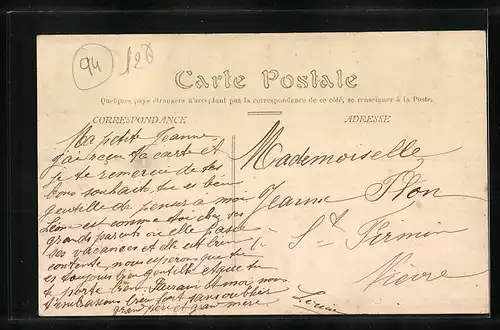 94
128
Carte Postale
Quelques pays étrangers n'acceptant pas la correspondance de ce côté, se renseigner à la Poste.
CORRESPONDANCE
ADRESSE
Ma petite Jeanne
J'ai reçu ta carte et
je te remercie de tes
bons souhaits, tu es bien
gentille de penser à moi
est comme toi chez ses
grands parents ou elle passe
ses vacances et elle est bien
contente, nous esperons que tu
es toujours bien gentille et que tu
te porte bien. et moi nous
t'embrassons bien fort sans oublier
grand père et grand mère
Mademoiselle
Jeanne
St Firmin
Nièvre